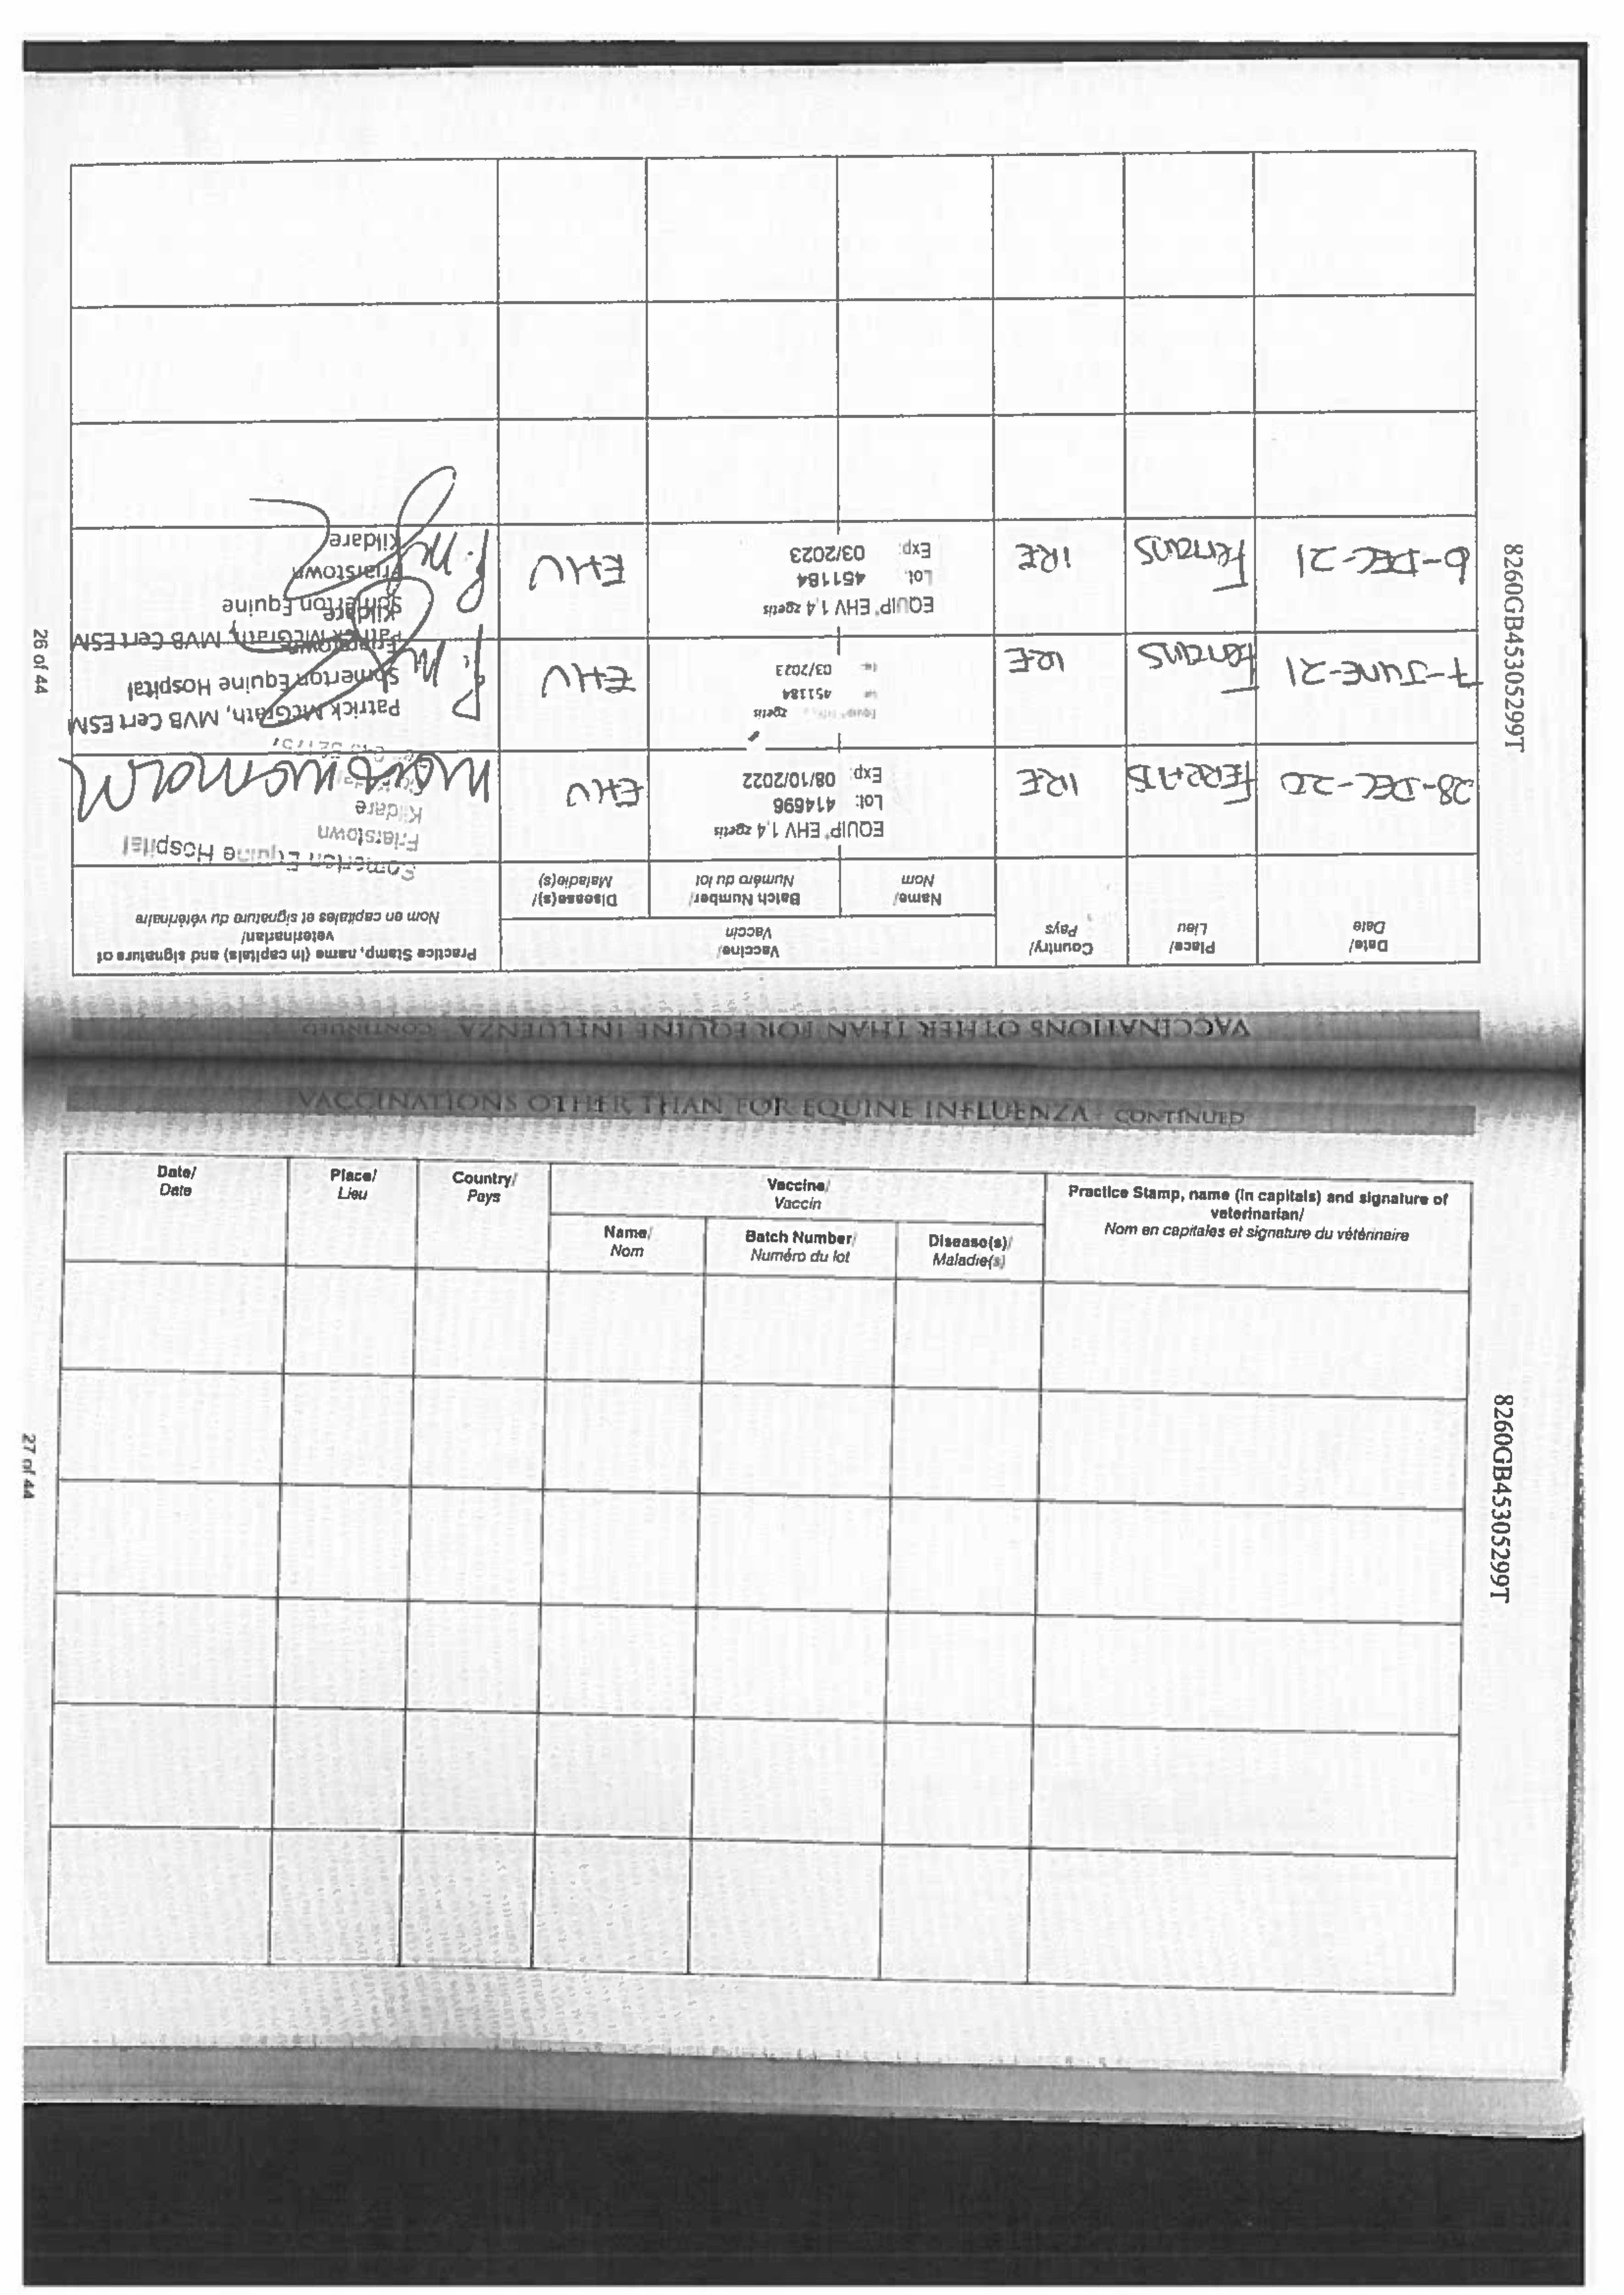 VACCINATIONS OTHER THAN FOR EQUINE INFLUENZA - CONTINUED
Date/
Date
Place/
Lieu
Country/
Pays
Vaccine/
Vaccin
Name/
Nom
Batch Number/
Numéro du lot
Disease(s)/
Maladie(s)
Practice Stamp, name (in capitals) and signature of
veterinarian/
Nom en capitales et signature du vétérinaire
28-DEC-20
IRE
EQUIP EHV 1,4 zoetis
Lot: 414696
Exp: 08/10/2022
EHV
Somerton Equine Hospital
Friarstown
Kildare
7-JUNE-21
IRE
zoetis
451184
03/2023
EHV
Patrick McGrath, MVB Cert ESM
Somerton Equine Hospital
Friarstown
Kildare
6-DEC-21
IRE
EQUIP EHV 1,4 zoetis
Lot: 451184
Exp: 03/2023
EHV
Patrick McGrath, MVB Cert ESM
Somerton Equine
Friarstown
Kildare
8260GB45305299T
26 of 44
VACCINATIONS OTHER THAN FOR EQUINE INFLUENZA - CONTINUED
Date/
Date
Place/
Lieu
Country/
Pays
Vaccine/
Vaccin
Name/
Nom
Batch Number/
Numéro du lot
Disease(s)/
Maladie(s)
Practice Stamp, name (in capitals) and signature of
veterinarian/
Nom en capitales et signature du vétérinaire
8260GB45305299T
27 of 44